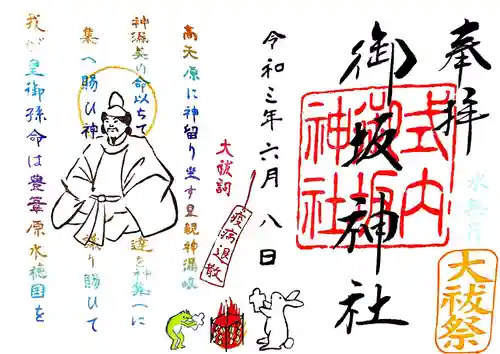 奉拝
水無月
大祓祭
式内
御坂
神社
御坂神社
令和三年六月八日
大祓詞
疫病退散
高天原に神留り坐す皇親神漏岐
神漏美の命以ちて 達を神集へに
集へ賜ひ神 議り賜ひて
我が皇御孫命は豊葦原水穂国を